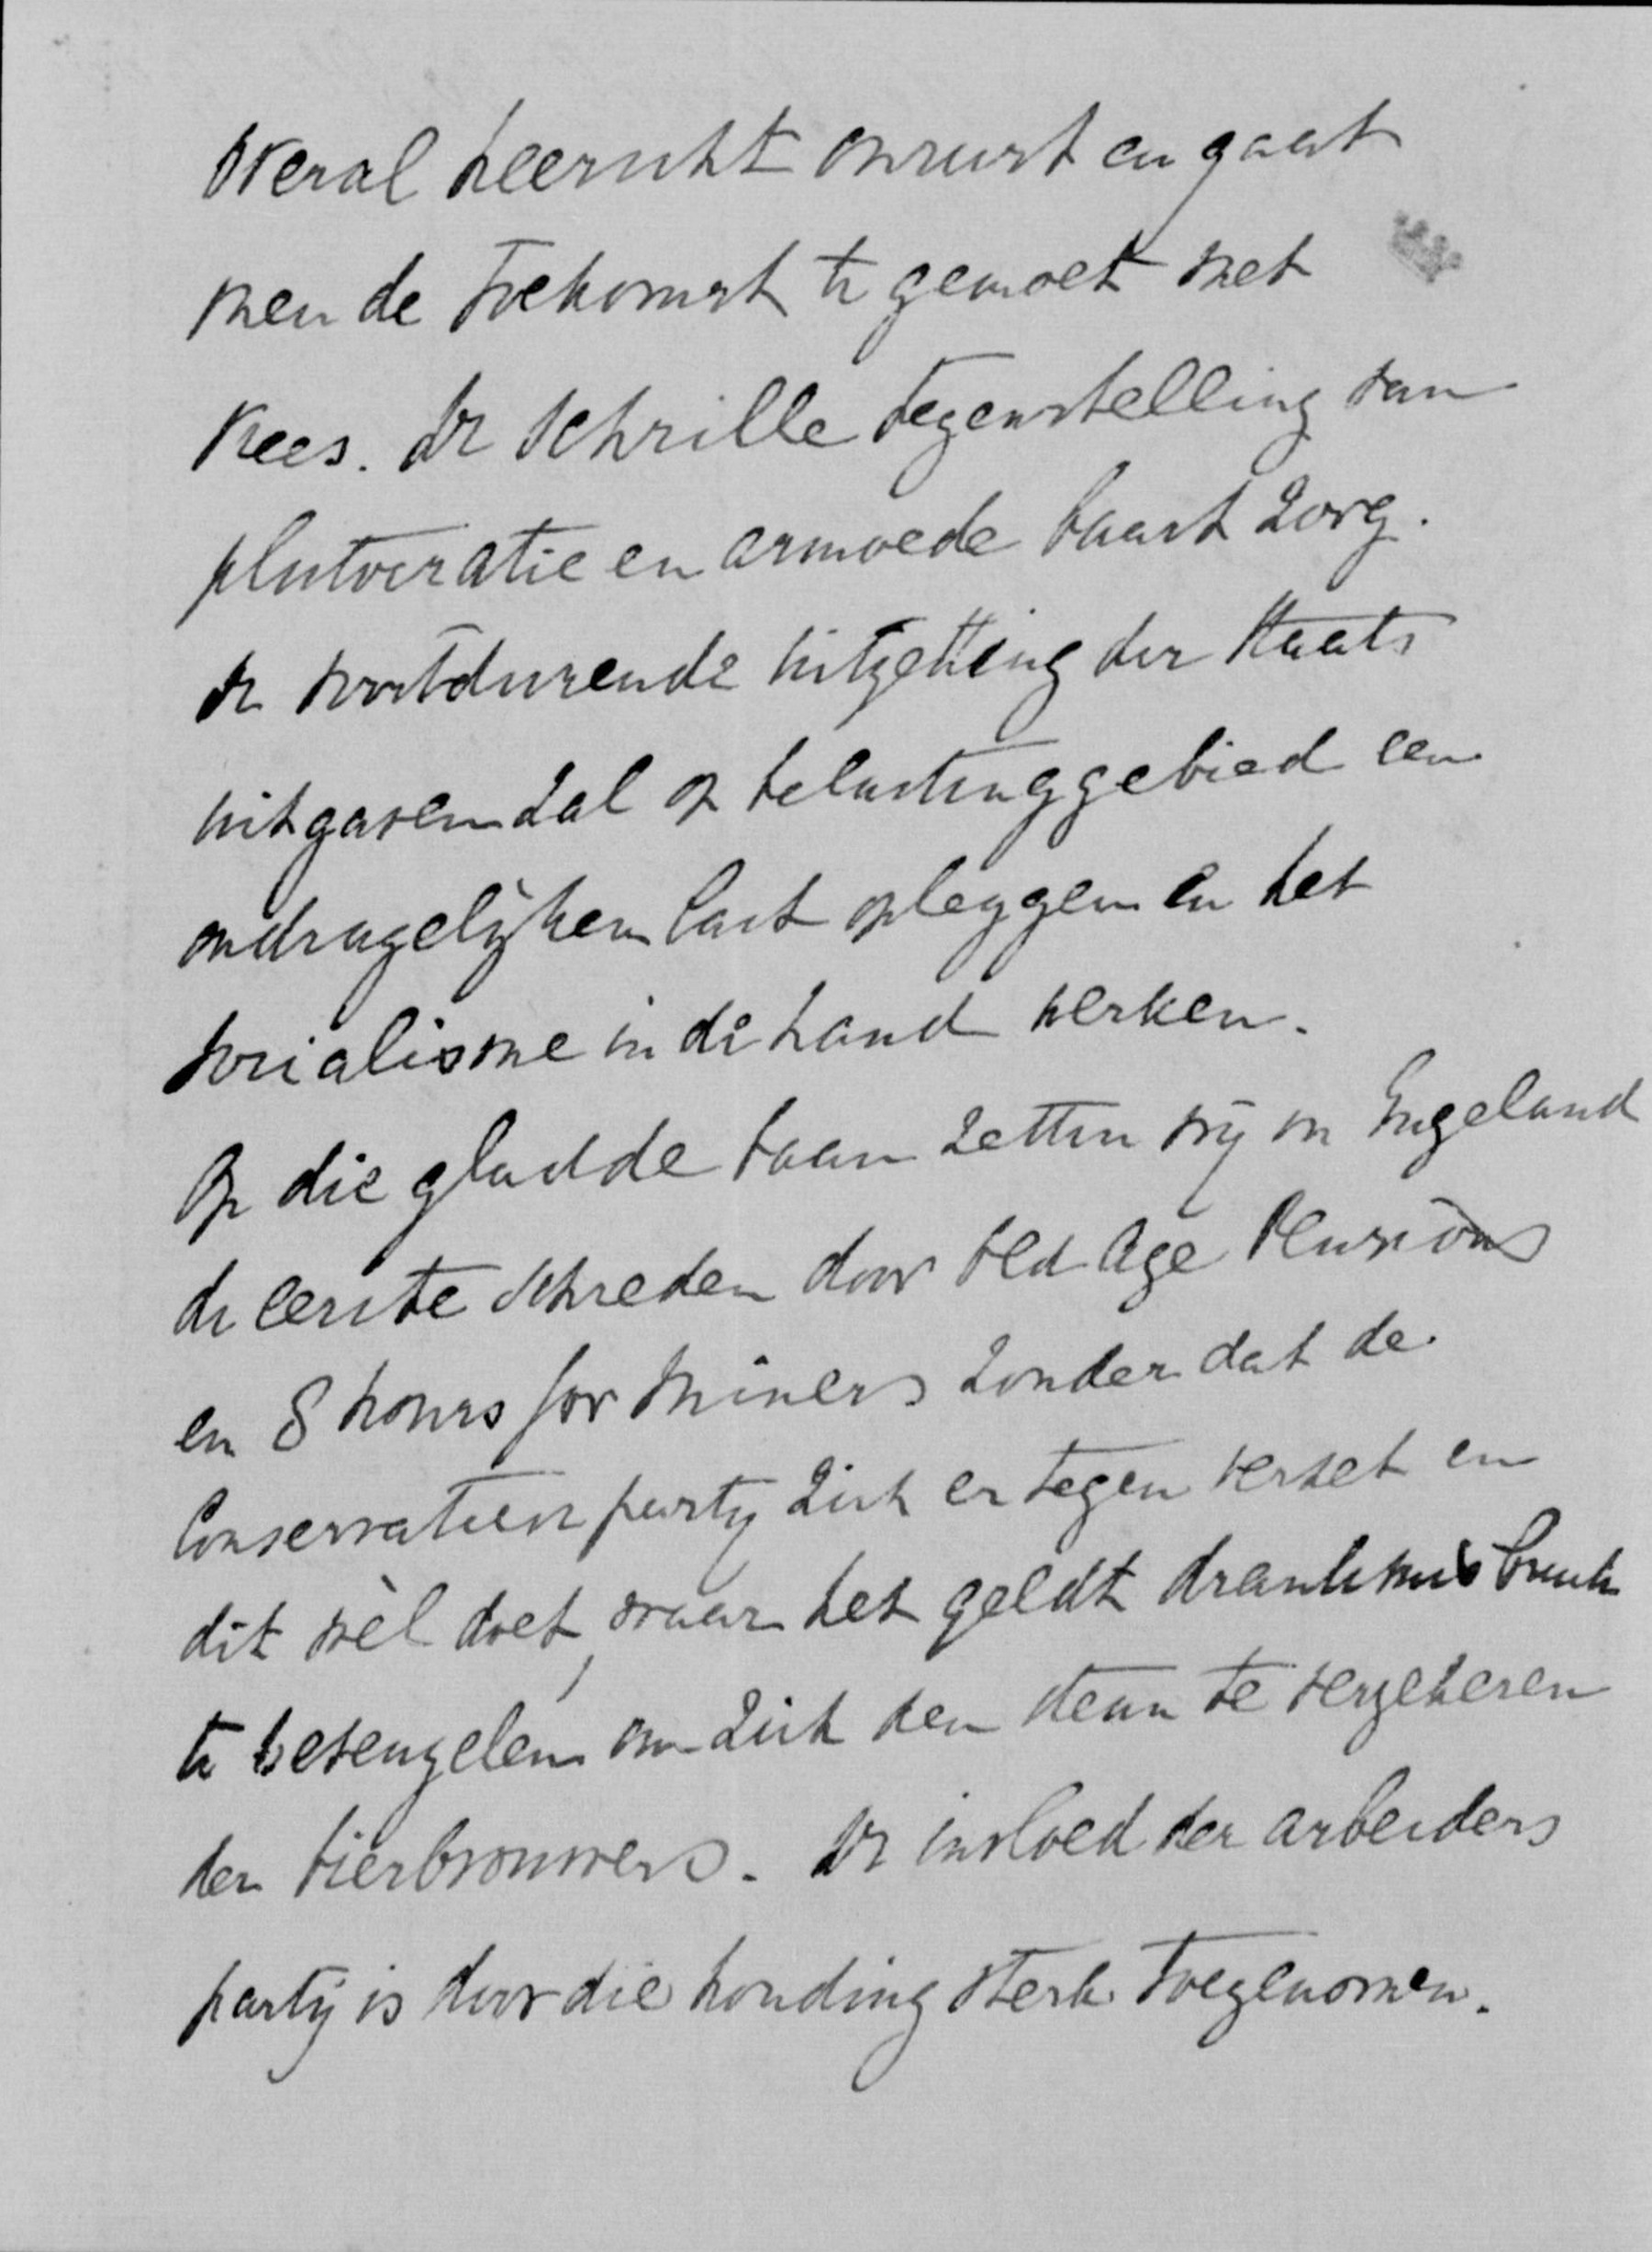 Overal heerscht onrust en gaat
men de toekomst te gemoet met
vrees. De schrille tegenstelling van
plutocratie en armoede baart zorg.
de voortdurende uitzetting der Staats
uitgaven zal op belastinggebied een
ondragelijken last opleggen en het
socialisme in de hand werken.
Op die gladde baan zetten wij in Engeland
de eerste schreden door Old Age Pensions
en 8 hours for Miners zonder dat de
Conservatieve party zich er tegen verzet en
dit wèl doet, waar het geldt drankmisbruik
te beteugelen om zich den steun te verzekeren
der bierbrouwers. De invloed der arbeiders
partij is door die houding sterk toegenomen.